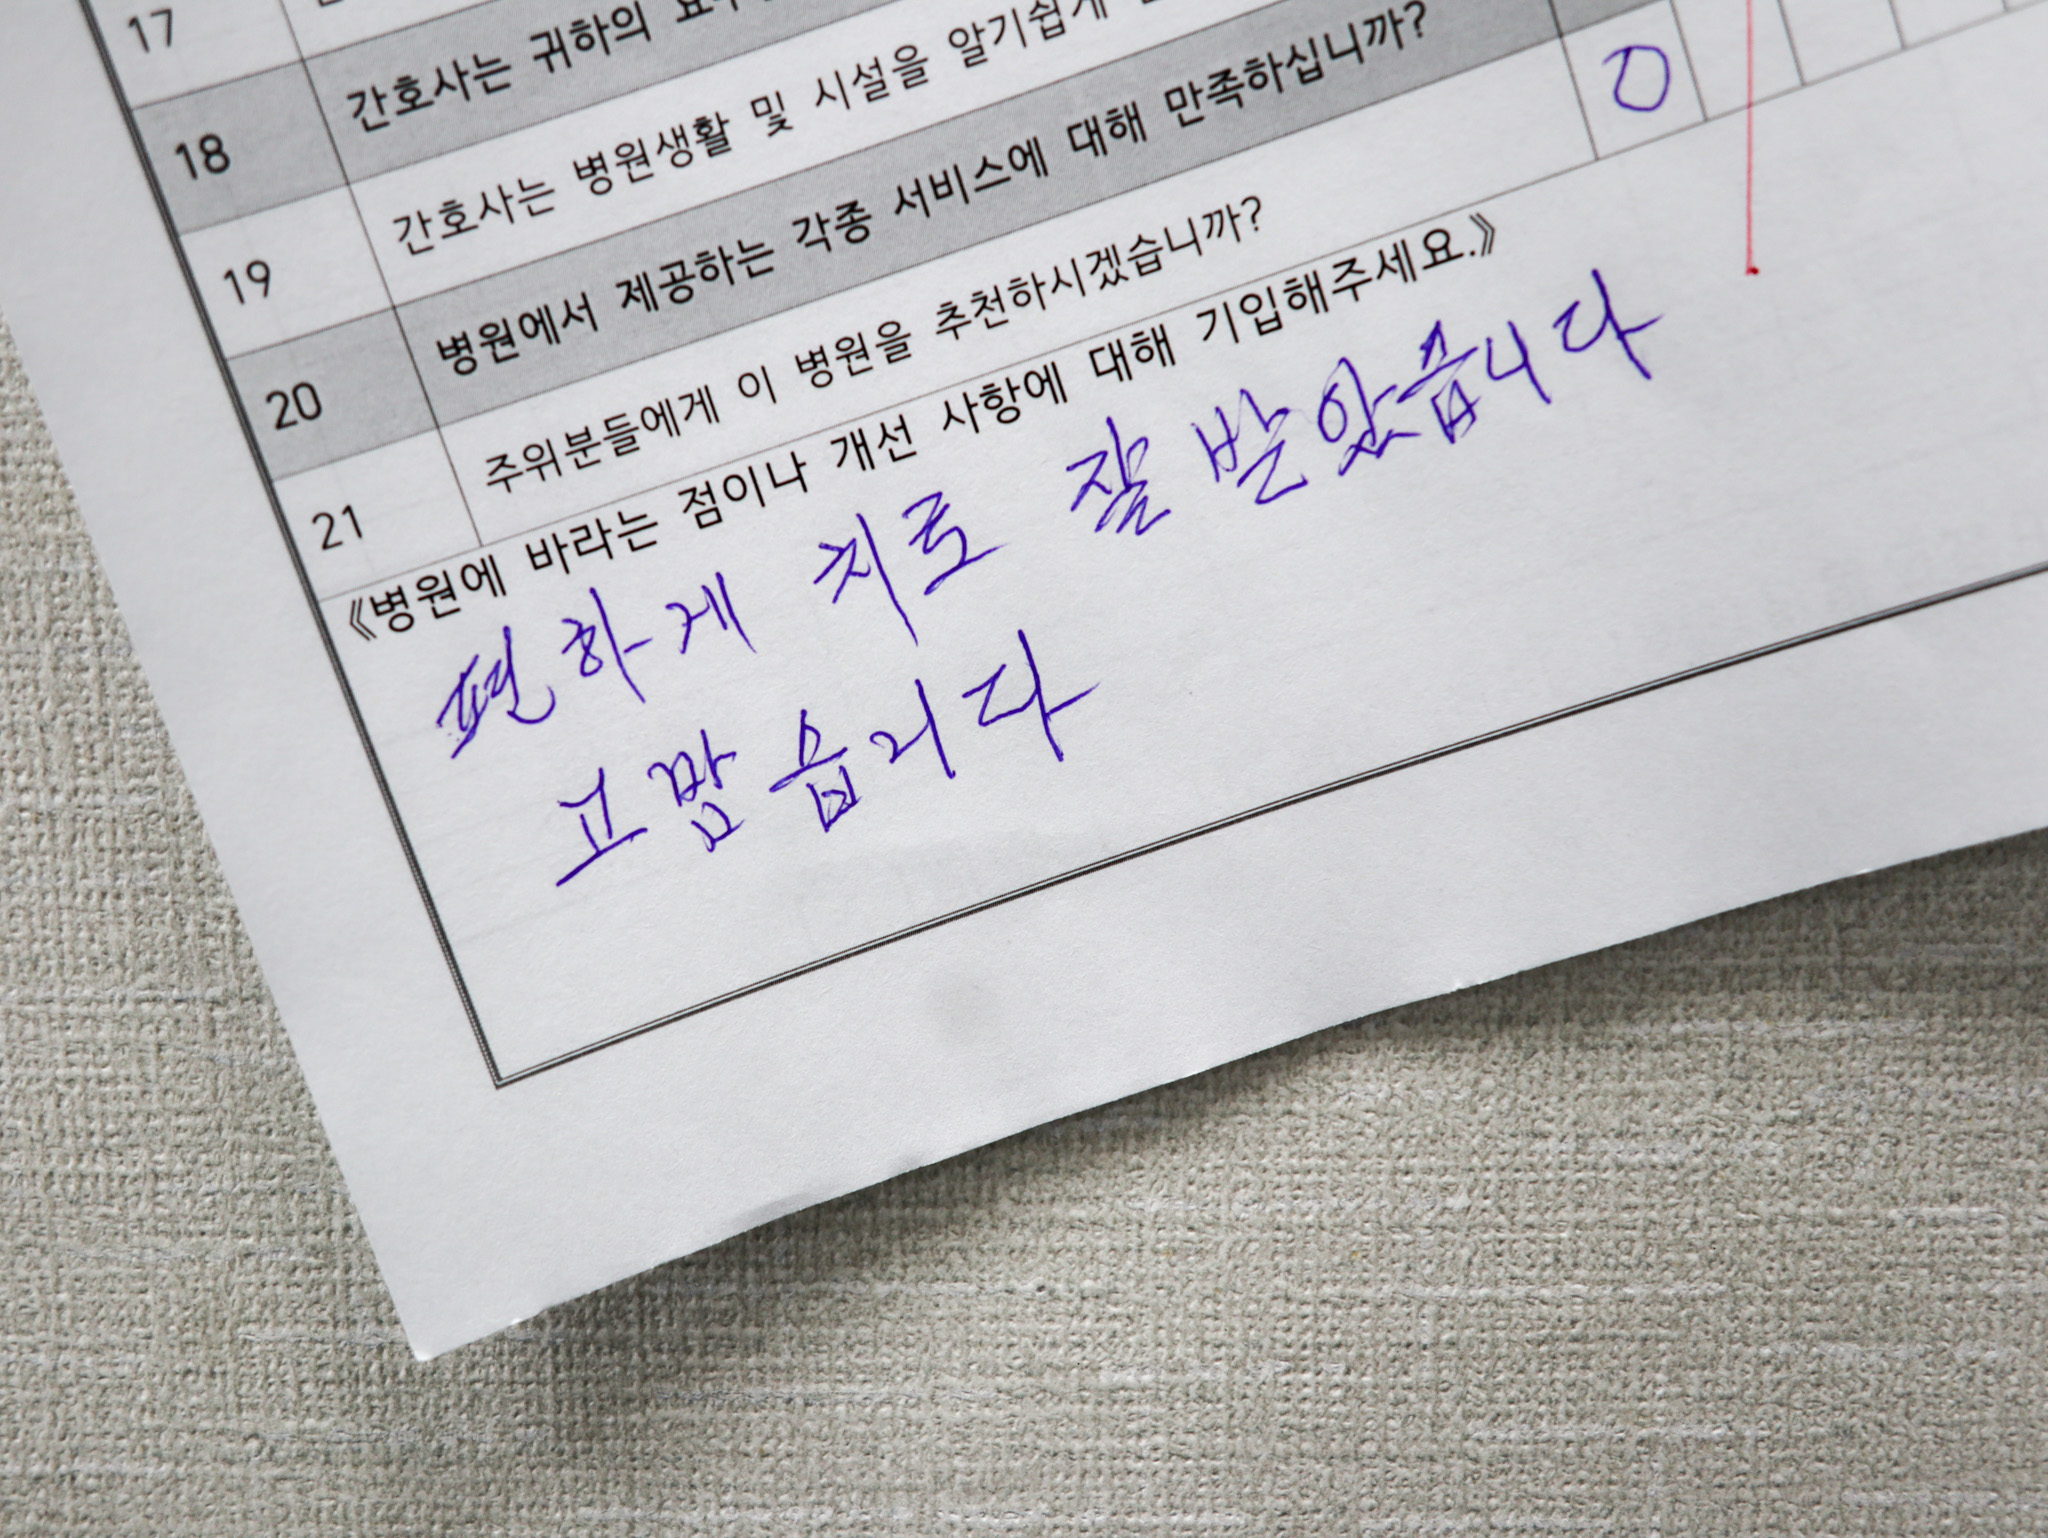 17
18 간호사는 귀하의
19 간호사는 병원생활 및 시설을 알기쉽게
20 병원에서 제공하는 각종 서비스에 대해 만족하십니까?
21 주위분들에게 이 병원을 추천하시겠습니까?
《병원에 바라는 점이나 개선 사항에 대해 기입해주세요.》
편하게 치료 잘 받았습니다
고맙습니다